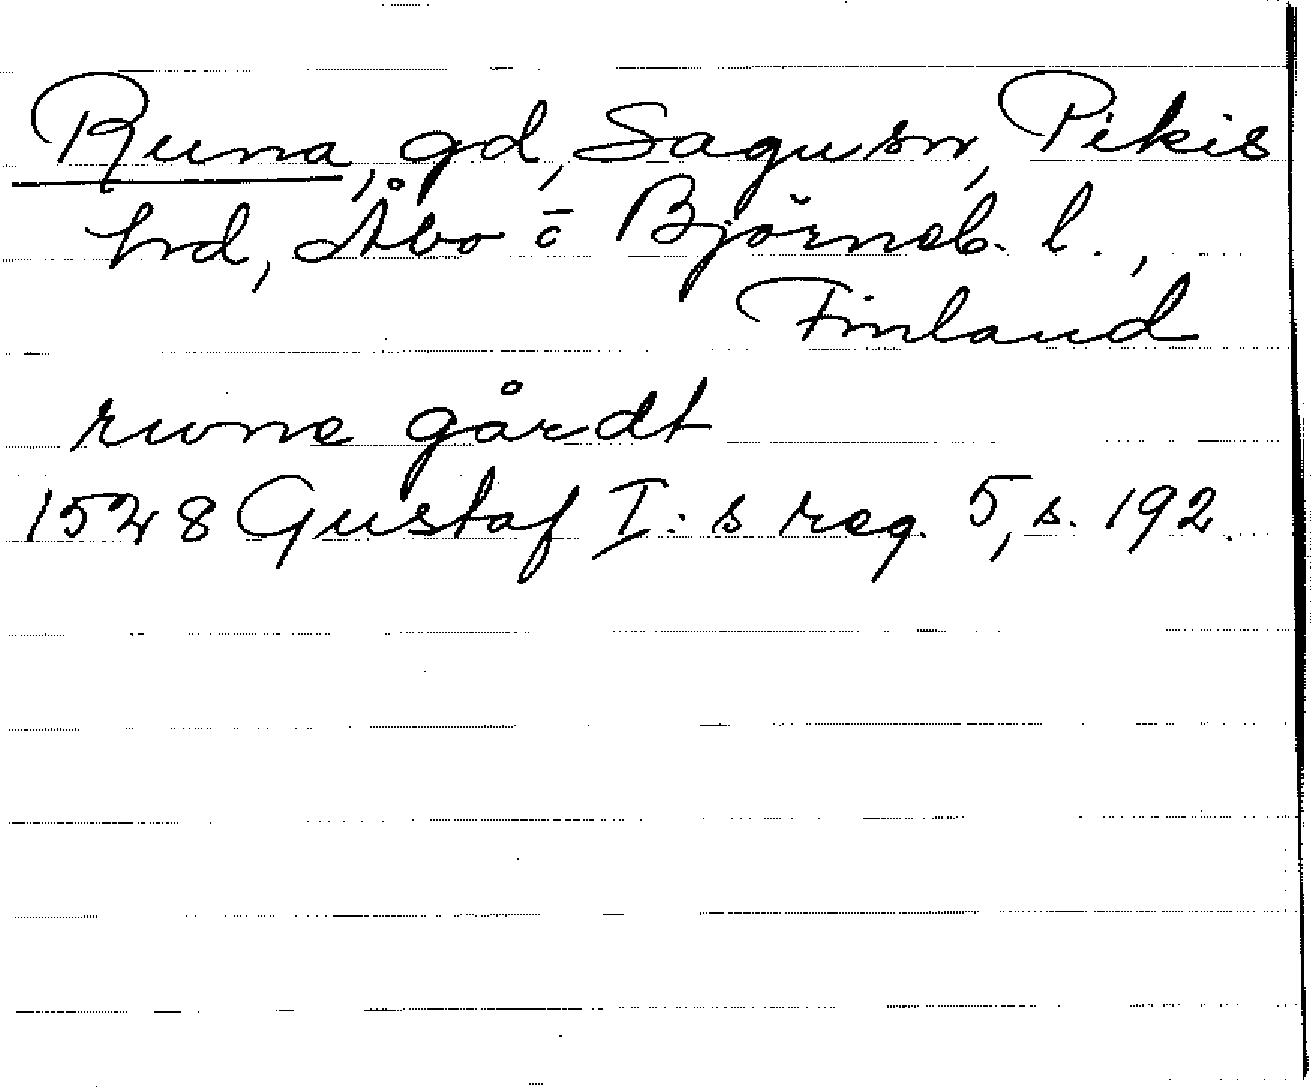 Runa, gd, Sagu sn, Pikis
hrd, Åbo o̅ Björneb. l.,
Finland
rwne gårdt
1528 Gustaf I:s reg. 5, s. 192.